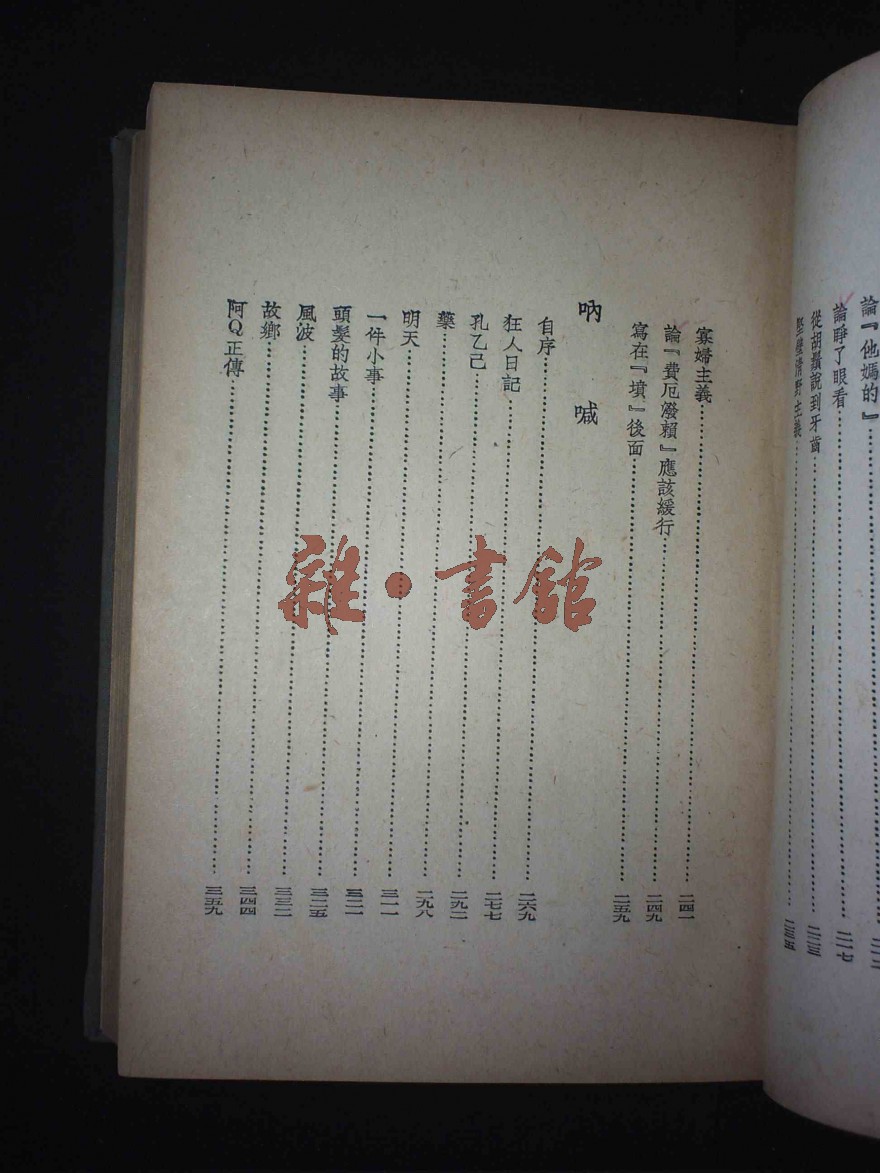 論『他媽的』
論睜了眼看……二一七
從胡鬚說到牙齒……二二三
堅壁清野主義……二三五
寡婦主義……二四一
論『費厄潑賴』應該緩行……二四九
寫在『墳』後面……二五九
吶喊
自序……二六九
狂人日記……二七七
孔乙己……二九二
藥……二九八
明天……三一一
一件小事……三二一
頭髮的故事……三二五
風波……三三二
故鄉……三四四
阿Q正傳……三五九
雜·書館